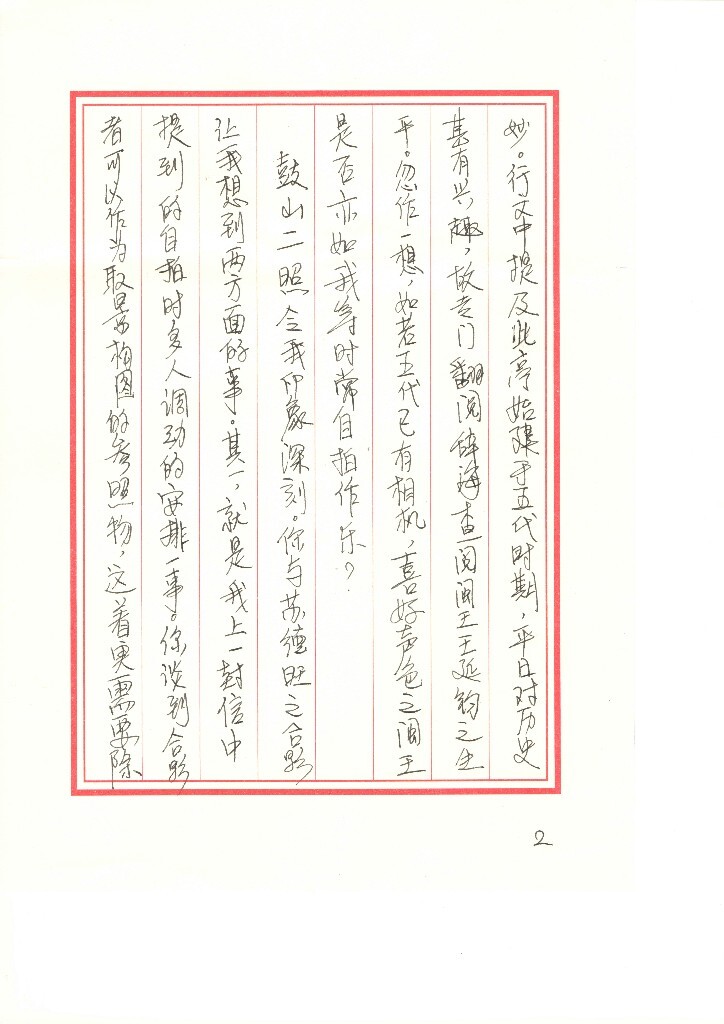 妙。行文中提及此亭始建于五代时期，平日对历史
甚有兴趣，故专门翻阅辞海查阅闽王王延钧之生
平。忽作一想，如若五代已有相机，喜好声色之闽王
是否亦如我等时常自拍作乐？
鼓山二照令我印象深刻。你与苏德旺之合影
让我想到两方面的事。其一，就是我上一封信中
提到的自拍时多人调动的安排一事。你谈到合影
者可以作为取景构图的参照物，这着实需要除
2